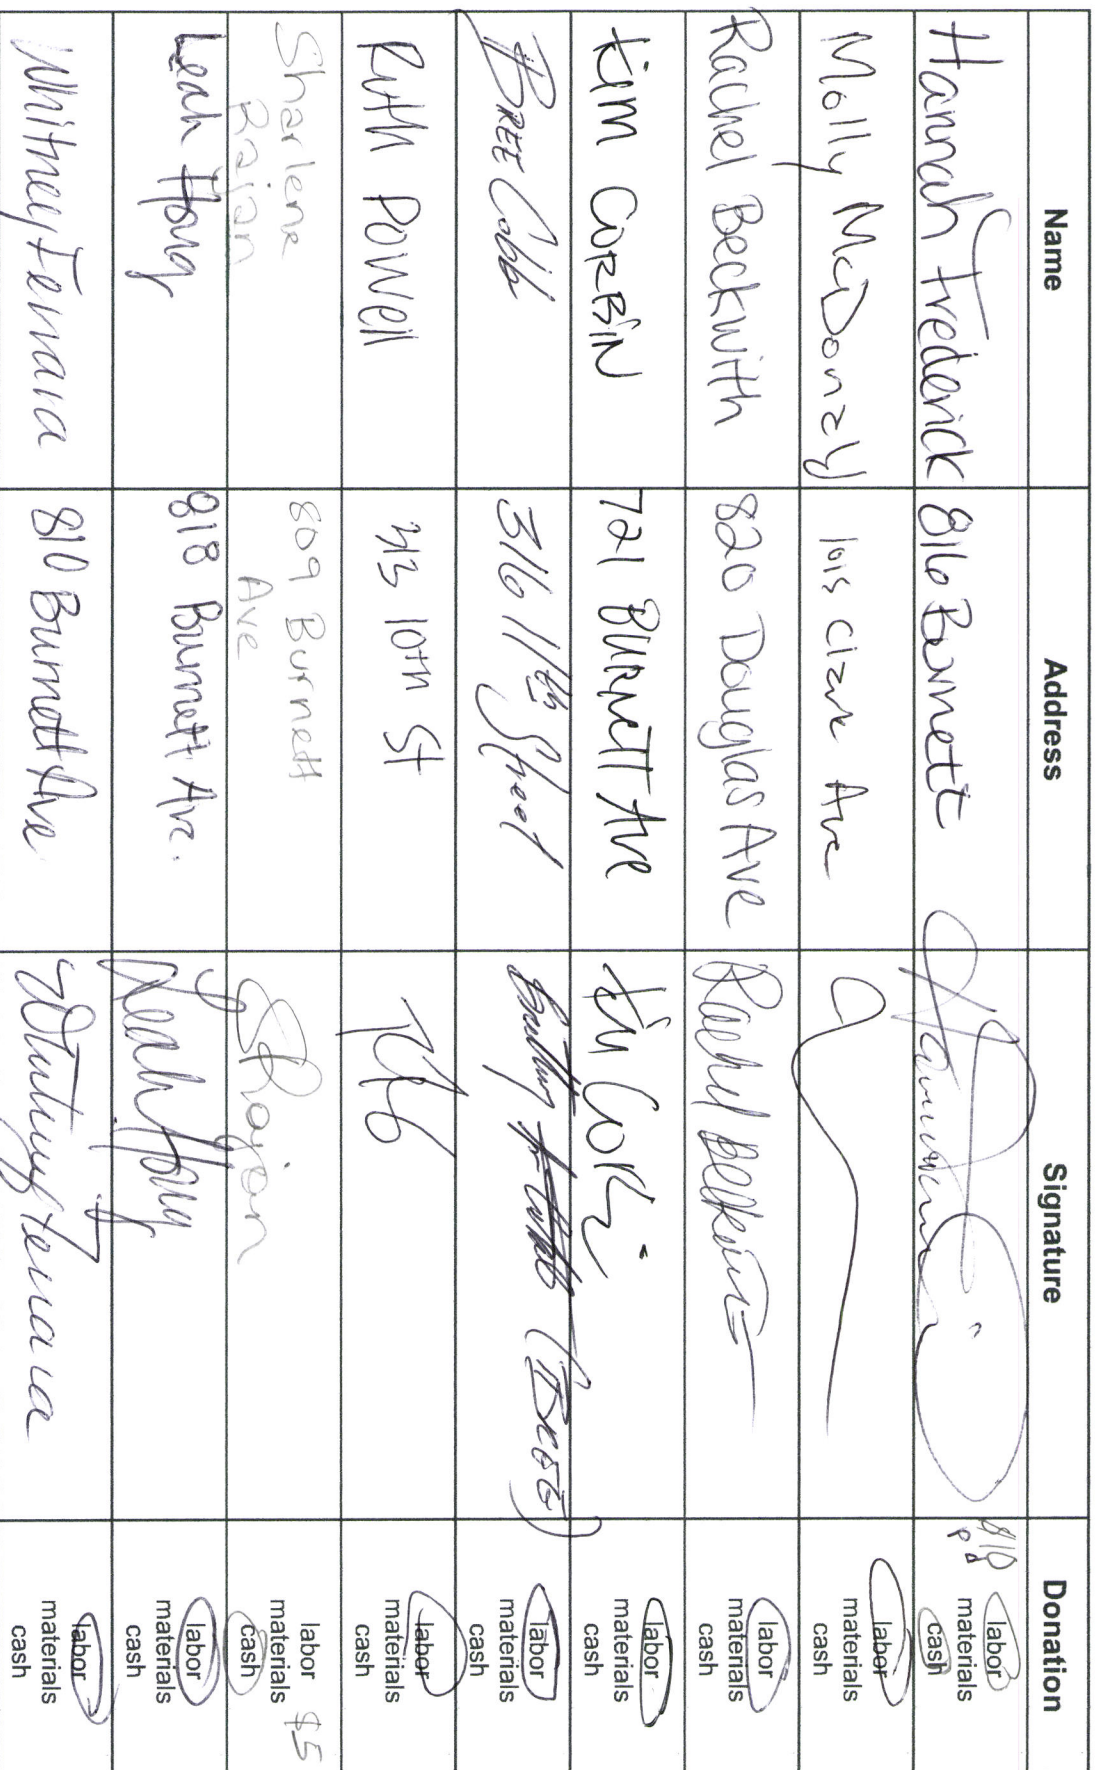 Name Address Signature Donation
Hannah Frederick 816 Burnett $10 pd labor
materials
cash
Molly McDonald Clark Ave labor
materials
cash
Rachel Beckwith 820 Douglas Ave Rachel Beckwith labor
materials
cash
Kim CORBIN 721 BURNETT Ave labor
materials
cash
BREE Cobb 316 11th Street labor
materials
cash
Ruth Powell 413 10th St labor
materials
cash
Sharlene
Rajan 809 Burnett
Ave SRajan labor $5
materials
cash
Leah Hong 818 Burnett Ave. Leah Hong labor
materials
cash
Whitney Ferrara 810 Burnett Ave Whitney Ferrara labor
materials
cash